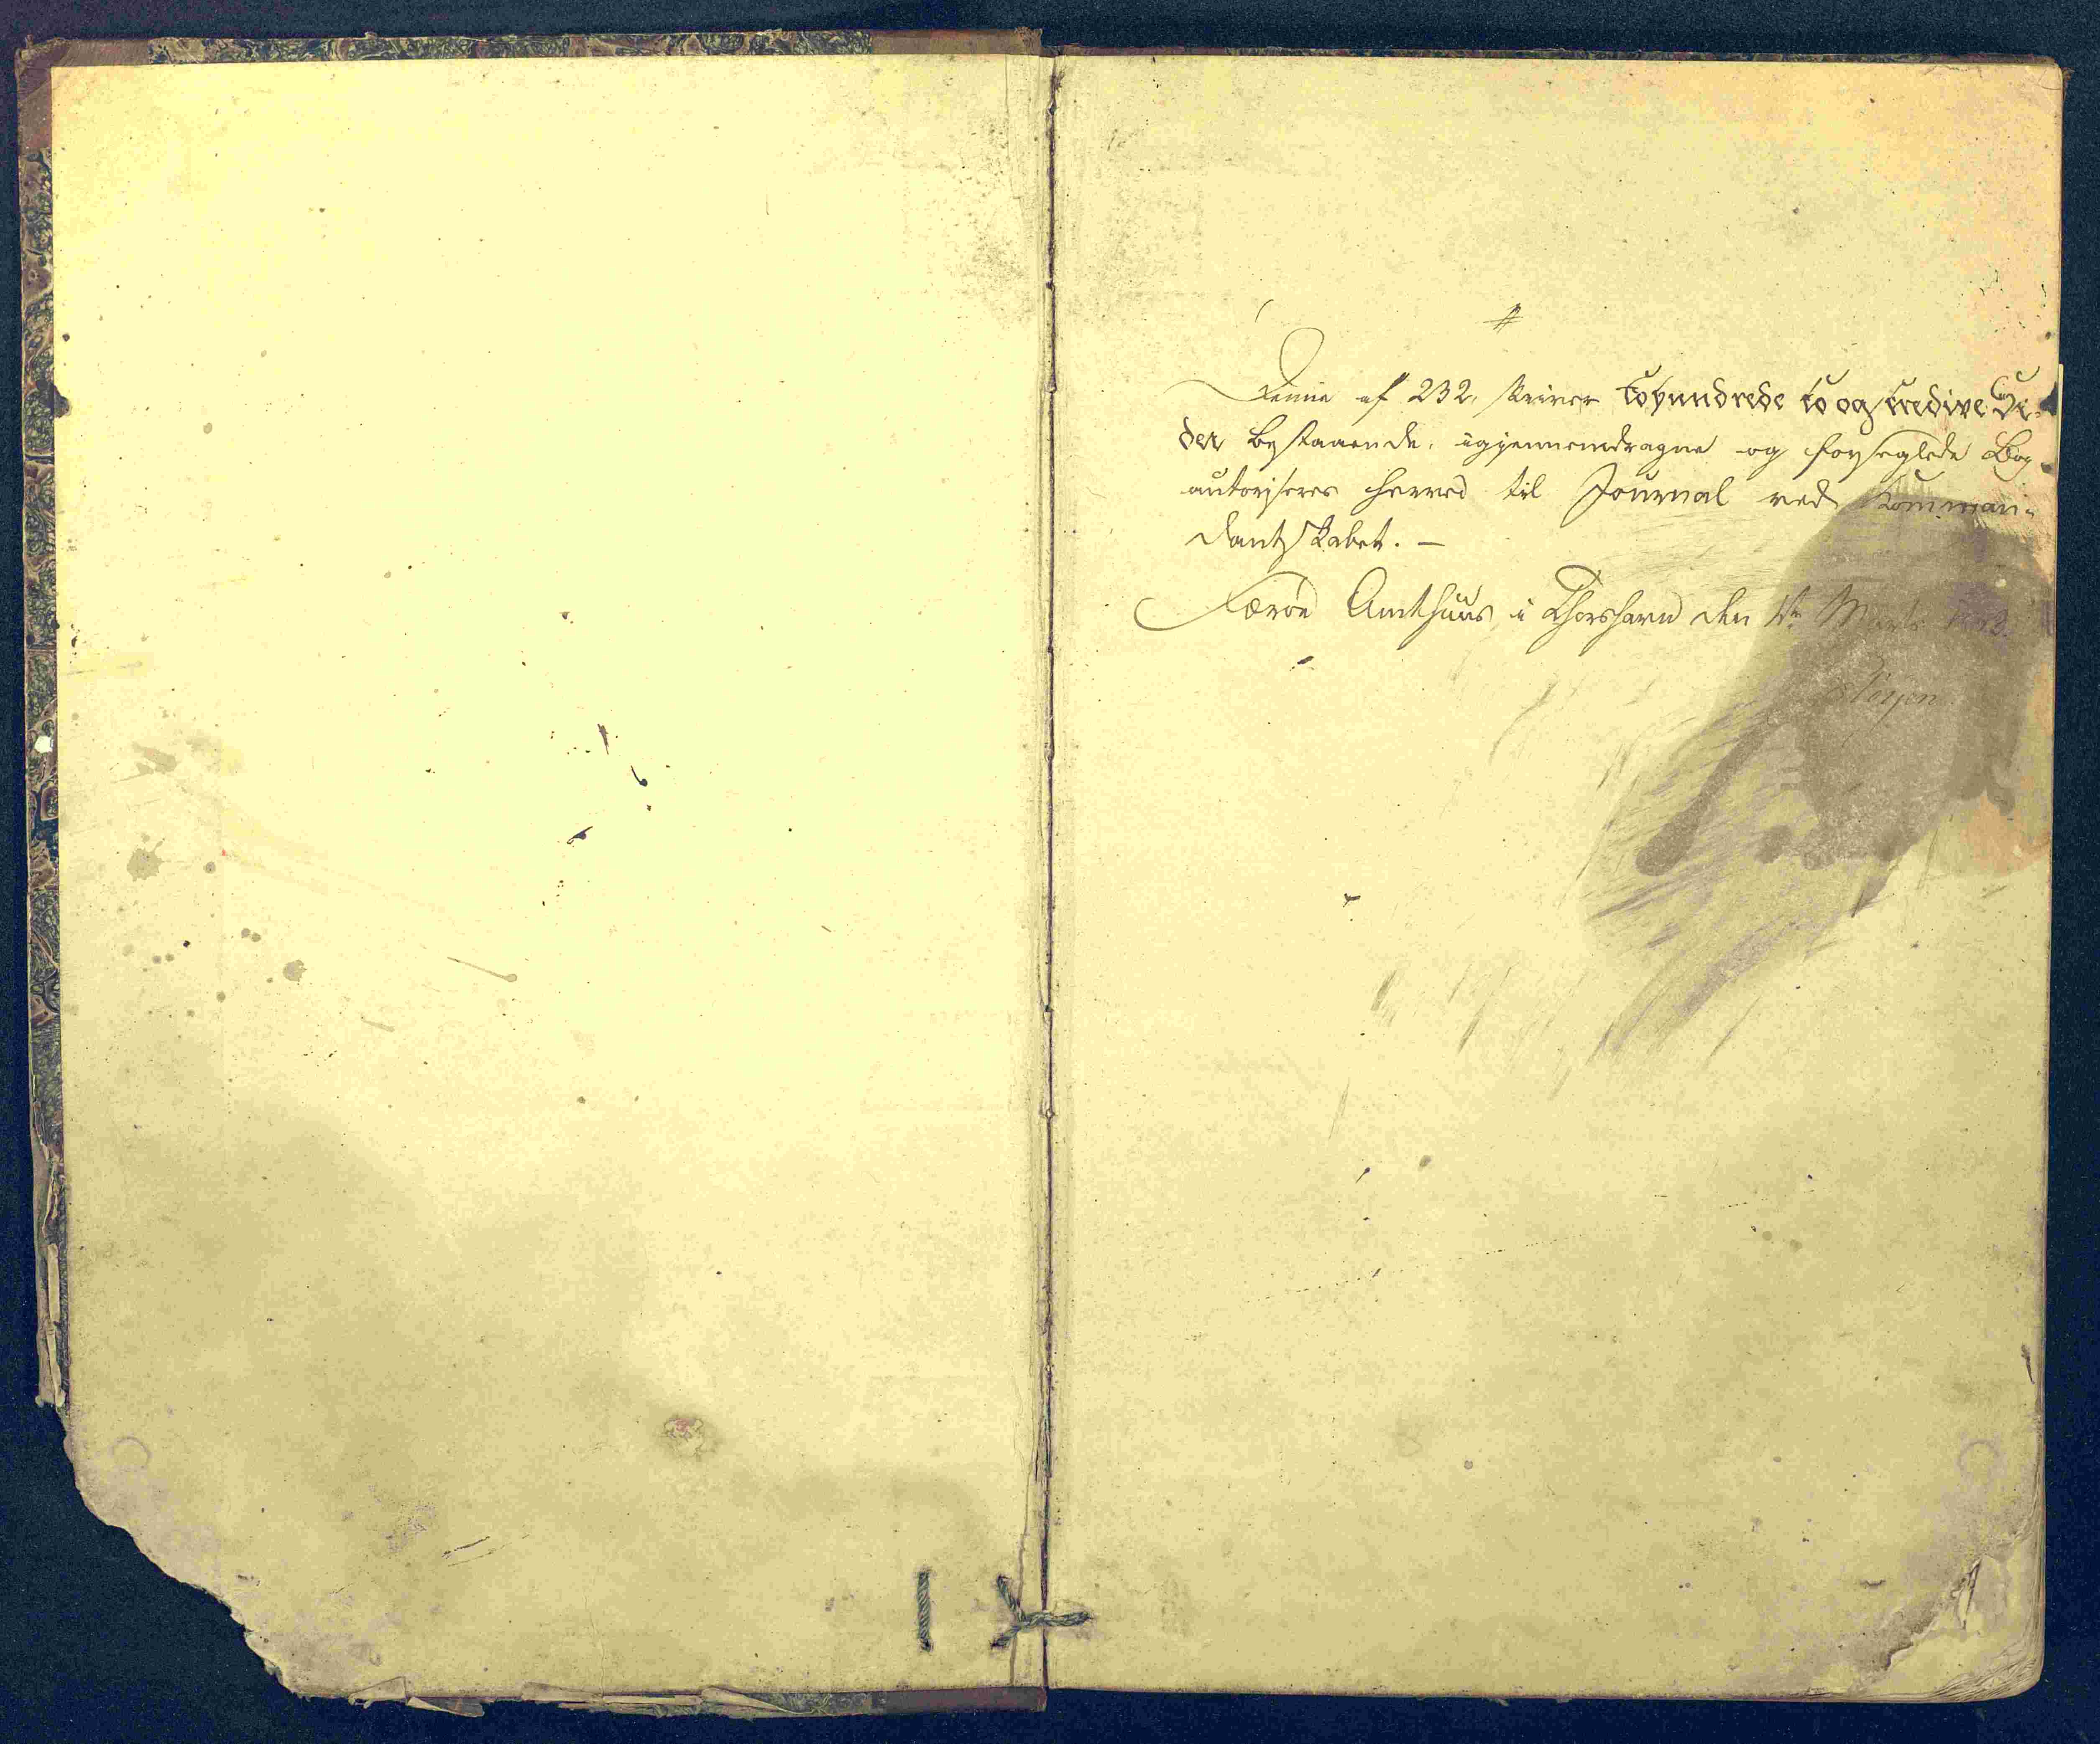 Denne af 232, skriver tohundrede to og tredive Si-
der bestaaende, igjennemdragne og forseglede Bog
autoriseres herved til Journal ved Komman-
dantskabet. —
Færøe Amthuus i Thorshavn den 1te Marts